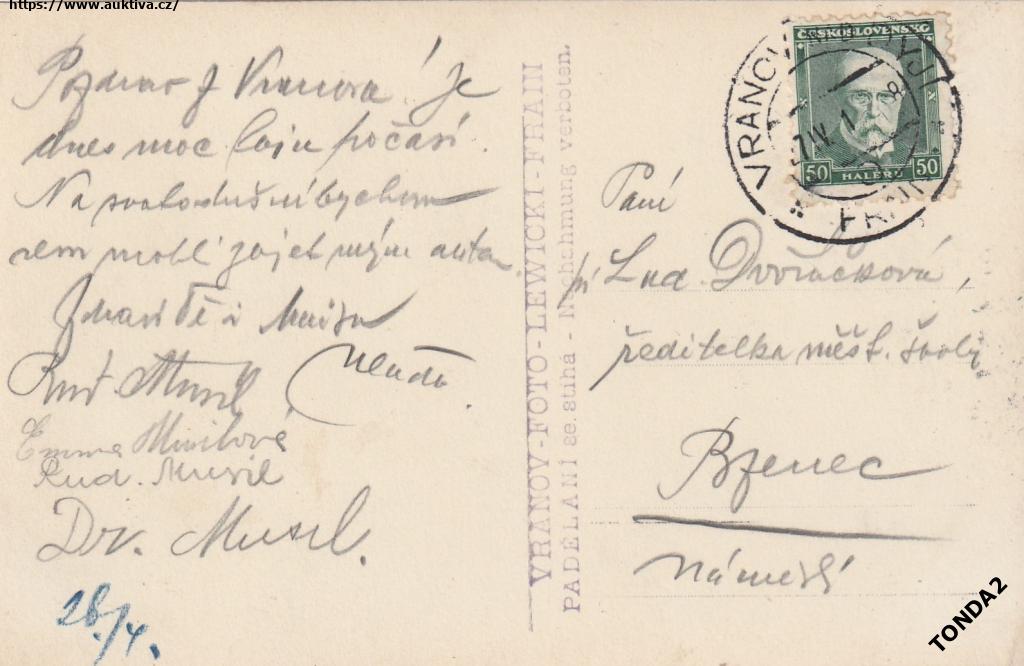 https://www.auktiva.cz/
Pozdrav z Vranova! Je
dnes moc počasí.
Na
sem mohl zajet mým autem
Zdraví Tě i
Rud. Musil
Emma Musilová
Rud. Musil
Dr. Musil.
28./4.
VRANOV-FOTO-LEWICKI-FRAIN
PADĚLÁNÍ se stíhá - Nachahmung verboten.
ČESKOSLOVENSKO
50 HALÉŘŮ 50
VRANOV NAD DYJÍ
Paní
Lud. Dvořáčková,
ředitelka měšť. školy
Bzenec
Náměstí
TONDA2